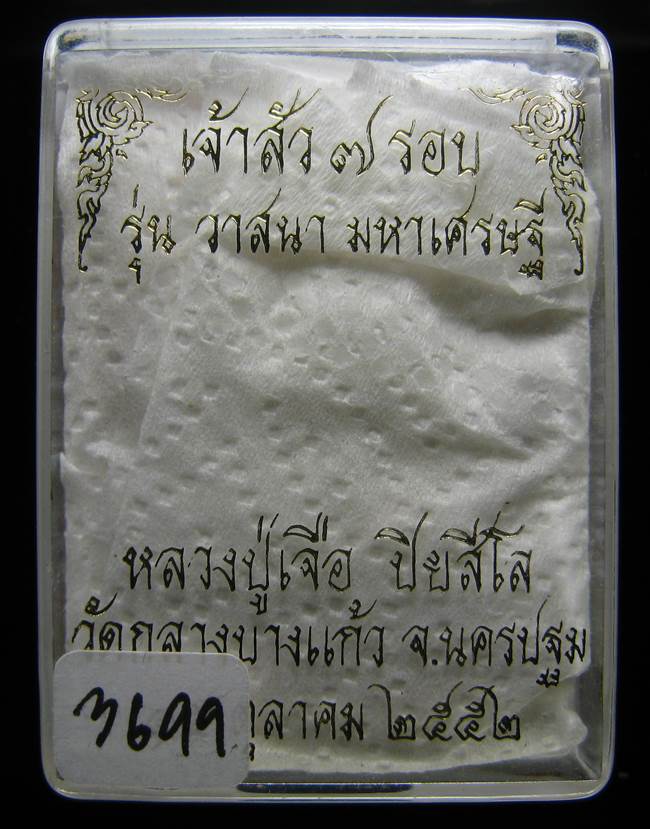 เจ้าสัว ๗ รอบ
รุ่น วาสนา มหาเศรษฐี
หลวงปู่เจือ ปิยสีโล
วัดกลางบางแก้ว จ.นครปฐม
ตุลาคม ๒๕๕๒
3699